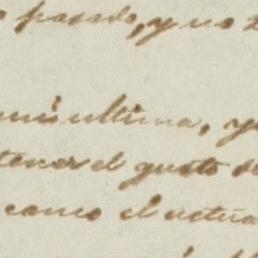 pasado, y no
mi ultima, y
tener el gusto de
como el actua